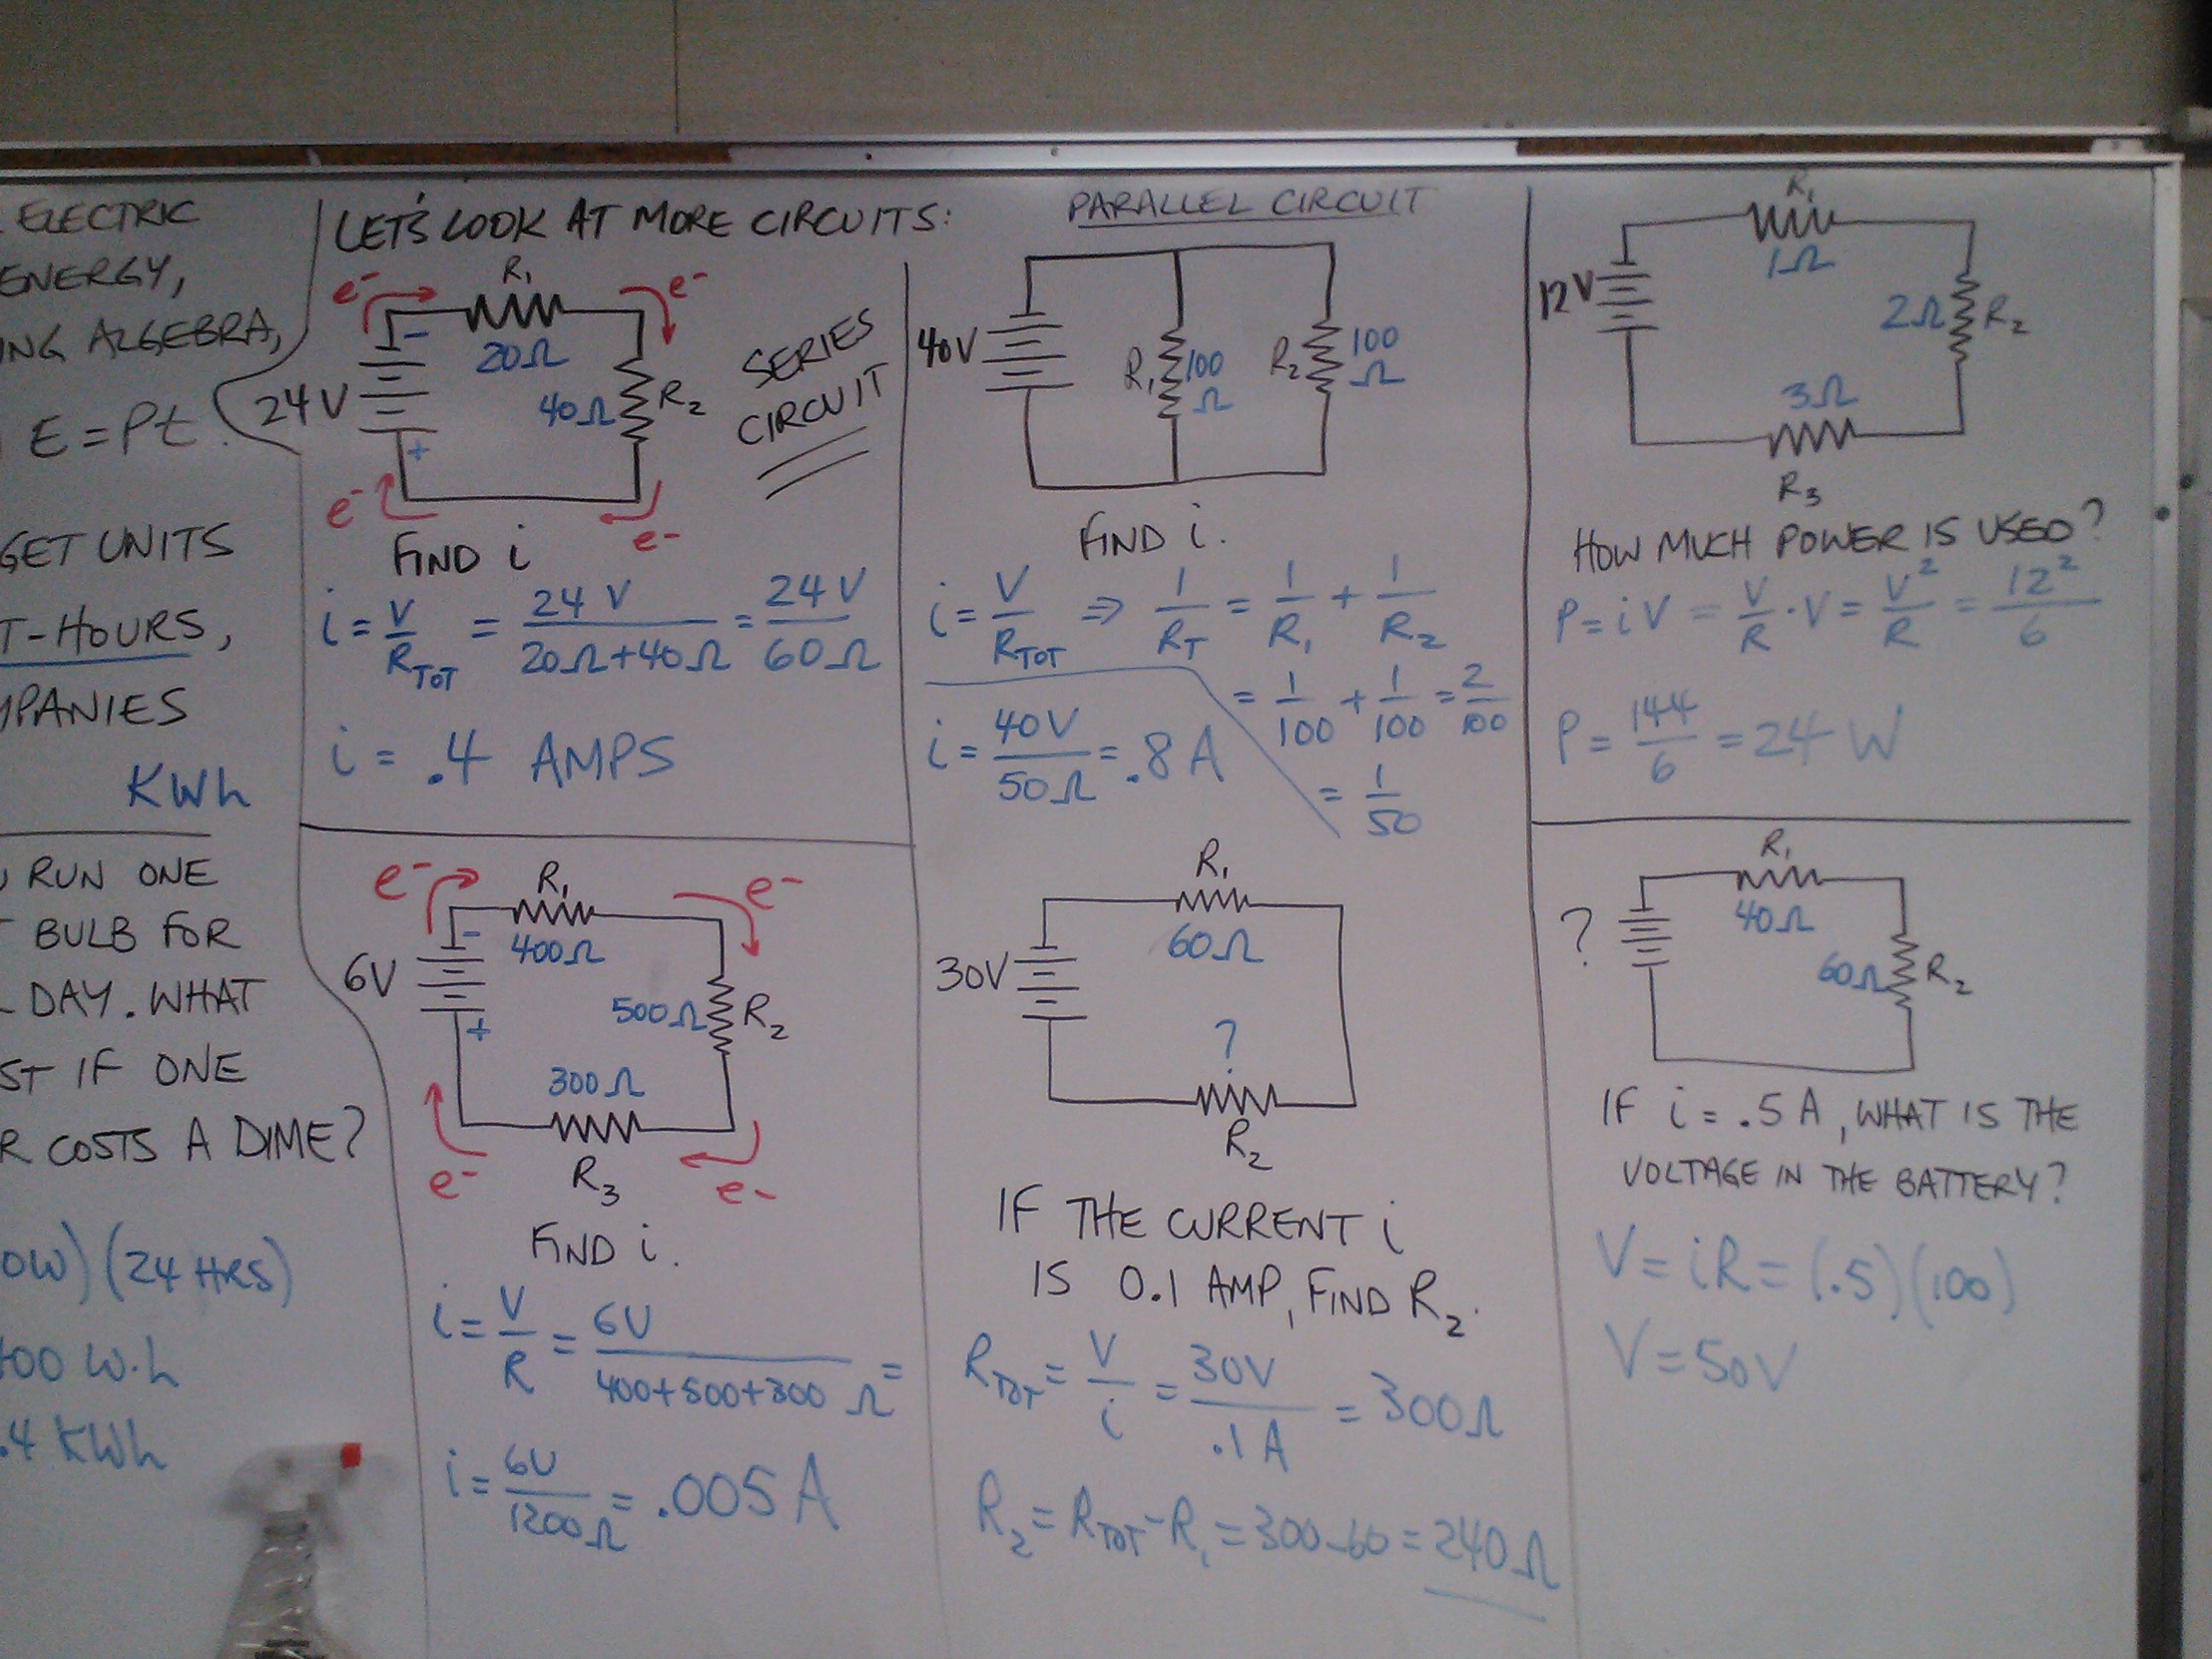 ELECTRIC
ENERGY,
ING ALGEBRA,
E = Pt.
GET UNITS
T-HOURS,
MPANIES
KWh
RUN ONE
BULB FOR
DAY. WHAT
ST IF ONE
R COSTS A DIME?
0W) (24 HRS)
400 W·h
.4 KWh
LET'S LOOK AT MORE CIRCUITS:
e- R1 e-
-
20Ω
24V
40Ω R2
+
e- e-
SERIES
CIRCUIT
FIND i
i = V/R_TOT = 24 V/20Ω+40Ω = 24 V/60Ω
i = .4 AMPS
e- R1 e-
-
400Ω
6V
500Ω R2
+
300Ω
e- R3 e-
FIND i.
i = V/R = 6V/400+500+300 Ω =
i = 6V/1200Ω = .005 A
PARALLEL CIRCUIT
40V R1 100 Ω R2 100 Ω
FIND i.
i = V/R_TOT ⇒ 1/R_T = 1/R1 + 1/R2
= 1/100 + 1/100 = 2/100
i = 40V/50Ω = .8 A
= 1/50
R1
60Ω
30V
?
R2
IF THE CURRENT i
IS 0.1 AMP, FIND R2.
R_TOT = V/i = 30V/.1 A = 300Ω
R2 = R_TOT - R1 = 300-60 = 240Ω
R1
1Ω
12V
2Ω R2
3Ω
R3
HOW MUCH POWER IS USED?
P = iV = V/R · V = V²/R = 12²/6
P = 144/6 = 24 W
R1
40Ω
?
60Ω R2
IF i = .5 A, WHAT IS THE
VOLTAGE IN THE BATTERY?
V = iR = (.5)(100)
V = 50V